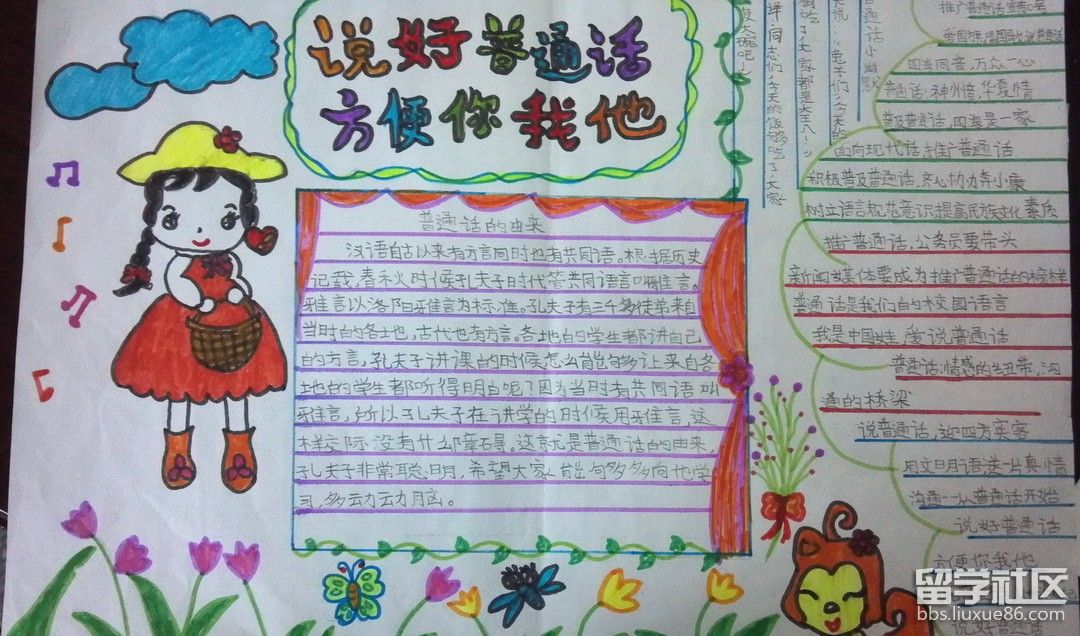 说好普通话
方便你我他
普通话的由来
汉语自古以来有方言同时也有共同语。根据历史
记载，春秋时候孔夫子时代管共同语言叫雅言。
雅言以洛阳雅言为标准。孔夫子有三千多徒弟来自
当时的各地，古代也有方言。各地的学生都讲自己
的方言，孔夫子讲课的时候怎么能够让来自各
地的学生都听得明白呢？因为当时有共同语叫
雅言，所以孔夫子在讲学的时候用雅言，这
样交际没有什么障碍。这就是普通话的由来，
孔夫子非常聪明，希望大家能够多多向他学
习，多动动脑。
普通话小幽默
推广普通话宣传口号
四海同音，万众一心
普通话：神州音，华夏情
普及普通话，四海是一家
面向现代话推广普通话
积极普及普通话，齐心协力奔小康
树立语言规范意识提高民族文化素质
推广普通话，公务员要带头
新闻媒体要成为推广普通话的榜样
普通话是我们的校园语言
我是中国娃，爱说普通话
普通话：情感的纽带，沟
通的桥梁
说普通话，迎四方宾客
用文明语送一片真情
沟通——从普通话开始
说好普通话
方便你我他
留学社区
bbs.liuxue86.com